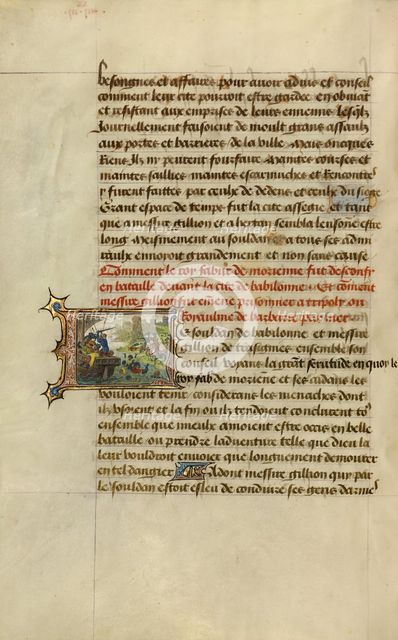 besongnes et affaires pour avoir advis et conseil
comment leur cite pourroit estre gardee en obviant
et resistant aux emprises de leurs ennemis lesqlz
Journellement faisoient de moult grans assaulz
aux portes et barrieres de la ville Mais oncques
Riens Ilz ny peurent fourfaire Maintes courses et
maintes saillies maintes escarmuches et Rencontres
y furent faittes par ceulx de dedens et ceulx du siege
Grant espace de temps fut la cite assegie et tant
que a messire gillion et a hertan sembla le ystre
long Meismement au souldan et a tous ses admi
raulx ennoyoit grandement et non sans cause
Comment le roy fabur de morienne fut desconfy
en bataille devant la cite de babilonne Et coment
messire gillion fut emene prisonnier a tripoly ou
Royaulme de barbarie par mer
Le souldan de babilonne et messire
gillion de trasignies ensemble son
conseil voyans la grat ferutude en quoy le
roy fab de moriene et ses aidans les
vouloient tenir considerans les menaches dont
ilz usoient et la fin ou ilz tendoient conclurent to9
ensemble que mieulx amoient estre occis en belle
bataille ou prendre ladventure telle que dieu la
leur vouldroit envoier que longuement demourer
en tel dangier Adont messire gillion quy par
le souldan estoit esleu de conduire ses gens darmes
Heritage